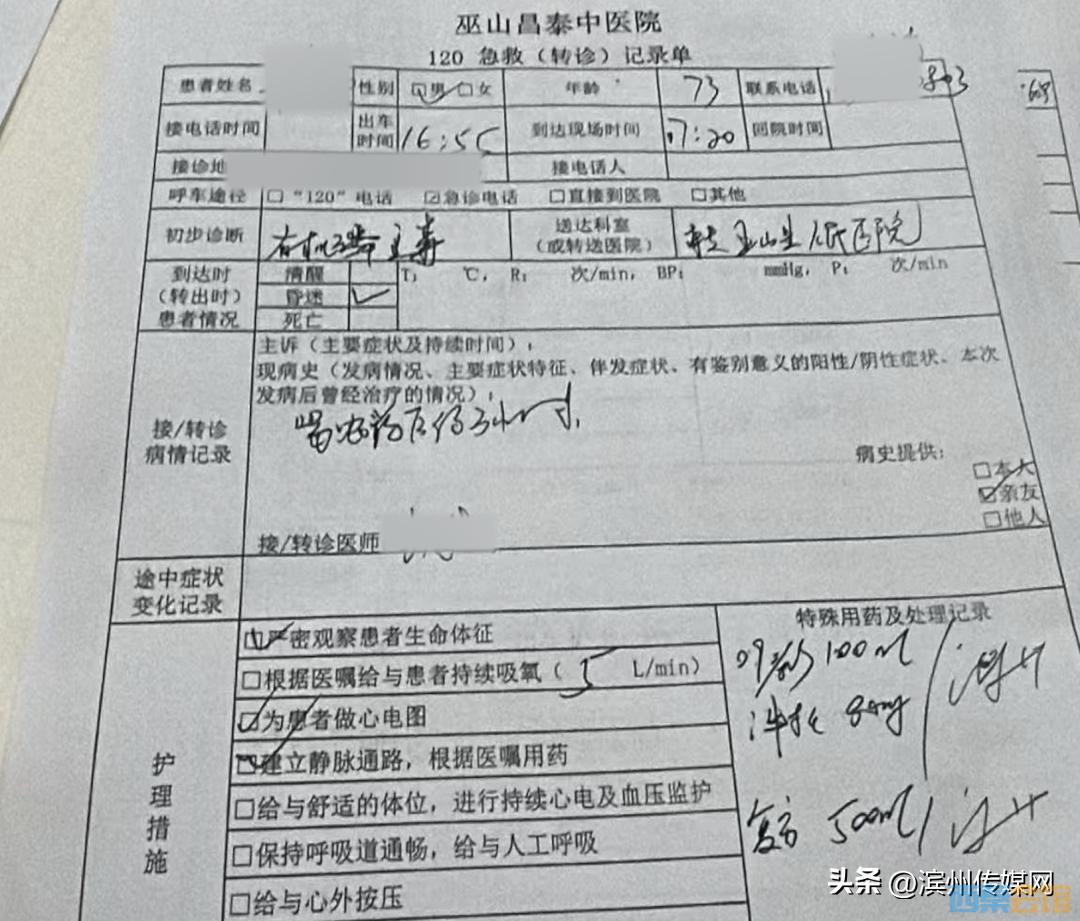 巫山昌泰中医院
120 急救（转诊）记录单
患者姓名 性别 ☑男 □女 年龄 73 联系电话
接电话时间 出车时间 16:55 到达现场时间 17:20 回院时间
接诊地 接电话人
呼车途径 □“120”电话 ☑急诊电话 □直接到医院 □其他
初步诊断 有机磷中毒 送达科室（或转送医院） 转巫山县人民医院
到达时（转出时）患者情况 清醒 T: ℃, R: 次/min, BP: mmHg, P: 次/min
昏迷 ✓
死亡
接/转诊病情记录
主诉（主要症状及持续时间）：
现病史（发病情况、主要症状特征、伴发症状、有鉴别意义的阳性/阴性症状、本次
发病后曾经治疗的情况）：
喝农药后约3小时.
病史提供：
□本人
☑亲友
□他人
接/转诊医师
途中症状变化记录
护理措施
☑严密观察患者生命体征
□根据医嘱给与患者持续吸氧（5 L/min）
☑为患者做心电图
☑建立静脉通路，根据医嘱用药
□给与舒适的体位，进行持续心电及血压监护
□保持呼吸道通畅，给与人工呼吸
□给与心外按压
特殊用药及处理记录
100ml
80mg
复方 500ml
头条 @滨州传媒网